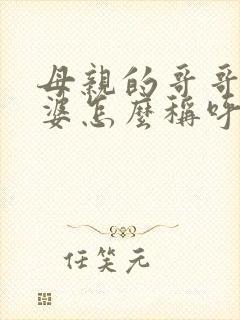 母親的哥哥
婆怎麼稱呼
任笑元